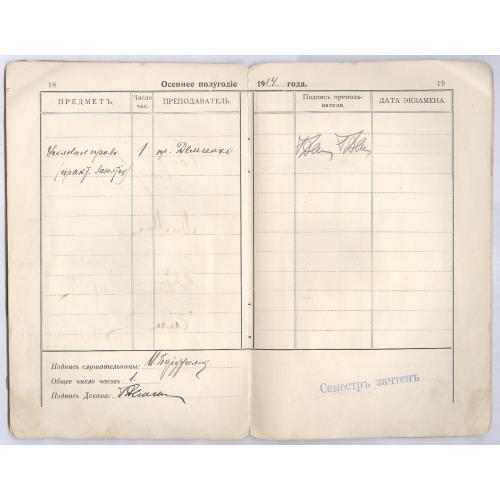 18
Осеннее полугодіе 1914 года.
19
ПРЕДМЕТЪ.
Число час.
ПРЕПОДАВАТЕЛЬ.
Подпись препода-
вателя.
ДАТА ЭКЗАМЕНА.
Уголовное право 1 пр. Демченко
(практ. занятія)
Подпись слушательницы:
Общее число часовъ 1.
Подпись Декана:
Семестръ зачтенъ